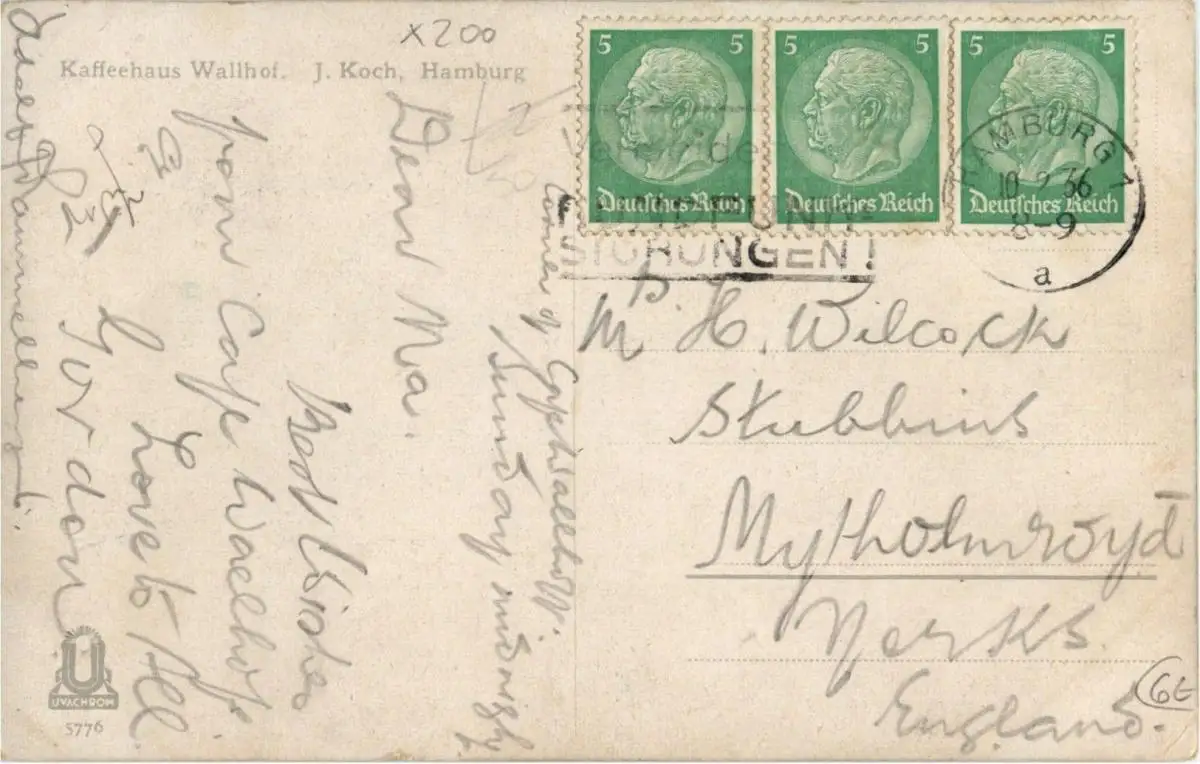 x200
Kaffeehaus Wallhof. J. Koch, Hamburg
5 5
5 5
5 5
Deutsches Reich
Deutsches Reich
Deutsches Reich
HAMBURG 1
10.2.36
8-9
a
STÖRUNGEN!
Corner of
Sunday midnight
Dear Ma.
Best Wishes
from Cafe Wallhof.
Love to All
Gordon
H. Wilcock
Stubbins
Mytholmroyd
Yorks.
England.
6E
U
UVACHROM
5776